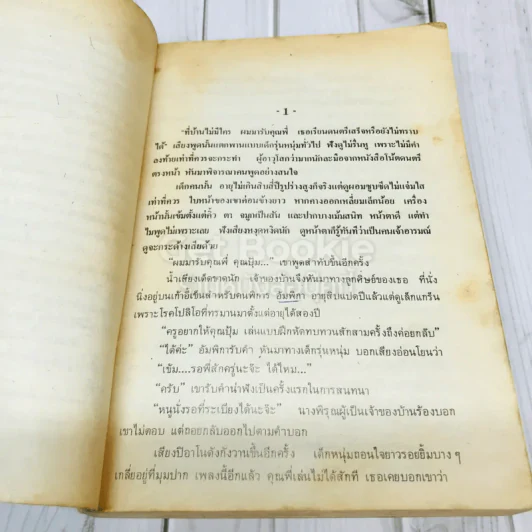 - 1 -
"ที่บ้านไม่มีใคร ผมมารับคุณพี่ เธอเรียนดนตรีเสร็จหรือยังไม่ทราบ
ได้" เสียงพูดนั้นแตกพานแบบเด็กรุ่นหนุ่มทั่วไป ฟังดูไม่รื่นหู เพราะไม่มีคำ
ลงท้ายเท่าที่ควรจะกระทำ ผู้อาวุโสกว่ามากนักละมือจากหนังสือโน้ตดนตรี
ตรงหน้า หันมาพิจารณาคนพูดอย่างสนใจ
เด็กคนนั้น อายุไม่เกินสิบสี่ปีรูปร่างสูงก็จริงแต่ดูผอมซูบซีดไม่แจ่มใส
เท่าที่ควร ใบหน้าของเขาค่อนข้างยาว หากคางออกเหลี่ยมเล็กน้อย เครื่อง
หน้านั้นเข้มตั้งแต่คิ้ว ตา จมูกเป็นสัน และปากบางเม้มสนิท หน้าตาดี แต่ทำ
ไมพูดไม่เพราะเลย ฟังเสียงหงุดหงิดนัก ดูหน้าตาก็รู้ทันทีว่าเป็นคนเจ้าอารมณ์
ดูจะกระด้างเสียด้วย
"ผมมารับคุณพี่ คุณปุ้ม..." เขาพูดสำทับขึ้นอีกครั้ง
น้ำเสียงเด็ดขาดนัก เจ้าของบ้านจึงหันมาทางลูกศิษย์ของเธอ ที่นั่ง
นิ่งอยู่บนเก้าอี้เข็นสำหรับคนพิการ อัมพิกา อายุสิบแปดปีแล้วแต่ดูเล็กแกร็น
เพราะโรคโปลิโอที่ทรมานมาตั้งแต่อายุได้สองปี
"ครูอยากให้คุณปุ้ม เล่นแบบฝึกหัดทบทวนสักสามครั้งถึงค่อยกลับ"
"ได้ค่ะ" อัมพิการับคำ หันมาทางเด็กรุ่นหนุ่ม บอกเสียงอ่อนโยนว่า
"เข้ม....รอพี่สักครู่นะจ๊ะ ได้ไหม..."
"ครับ" เขารับคำน่าฟังเป็นครั้งแรกในการสนทนา
"หนูนั่งรอที่ระเบียงได้นะจ๊ะ" นางพิรุณผู้เป็นเจ้าของบ้านร้องบอก
เขาไม่ตอบ แต่ถอยกลับออกไปตามคำบอก
เสียงเปียโนดังกังวานขึ้นอีกครั้ง เด็กหนุ่มถอนใจยาวรอยยิ้มบาง ๆ
เกลื่อยู่ที่มุมปาก เพลงนี้อีกแล้ว คุณพี่เล่นไม่ได้สักที เธอเคยบอกเขาว่า